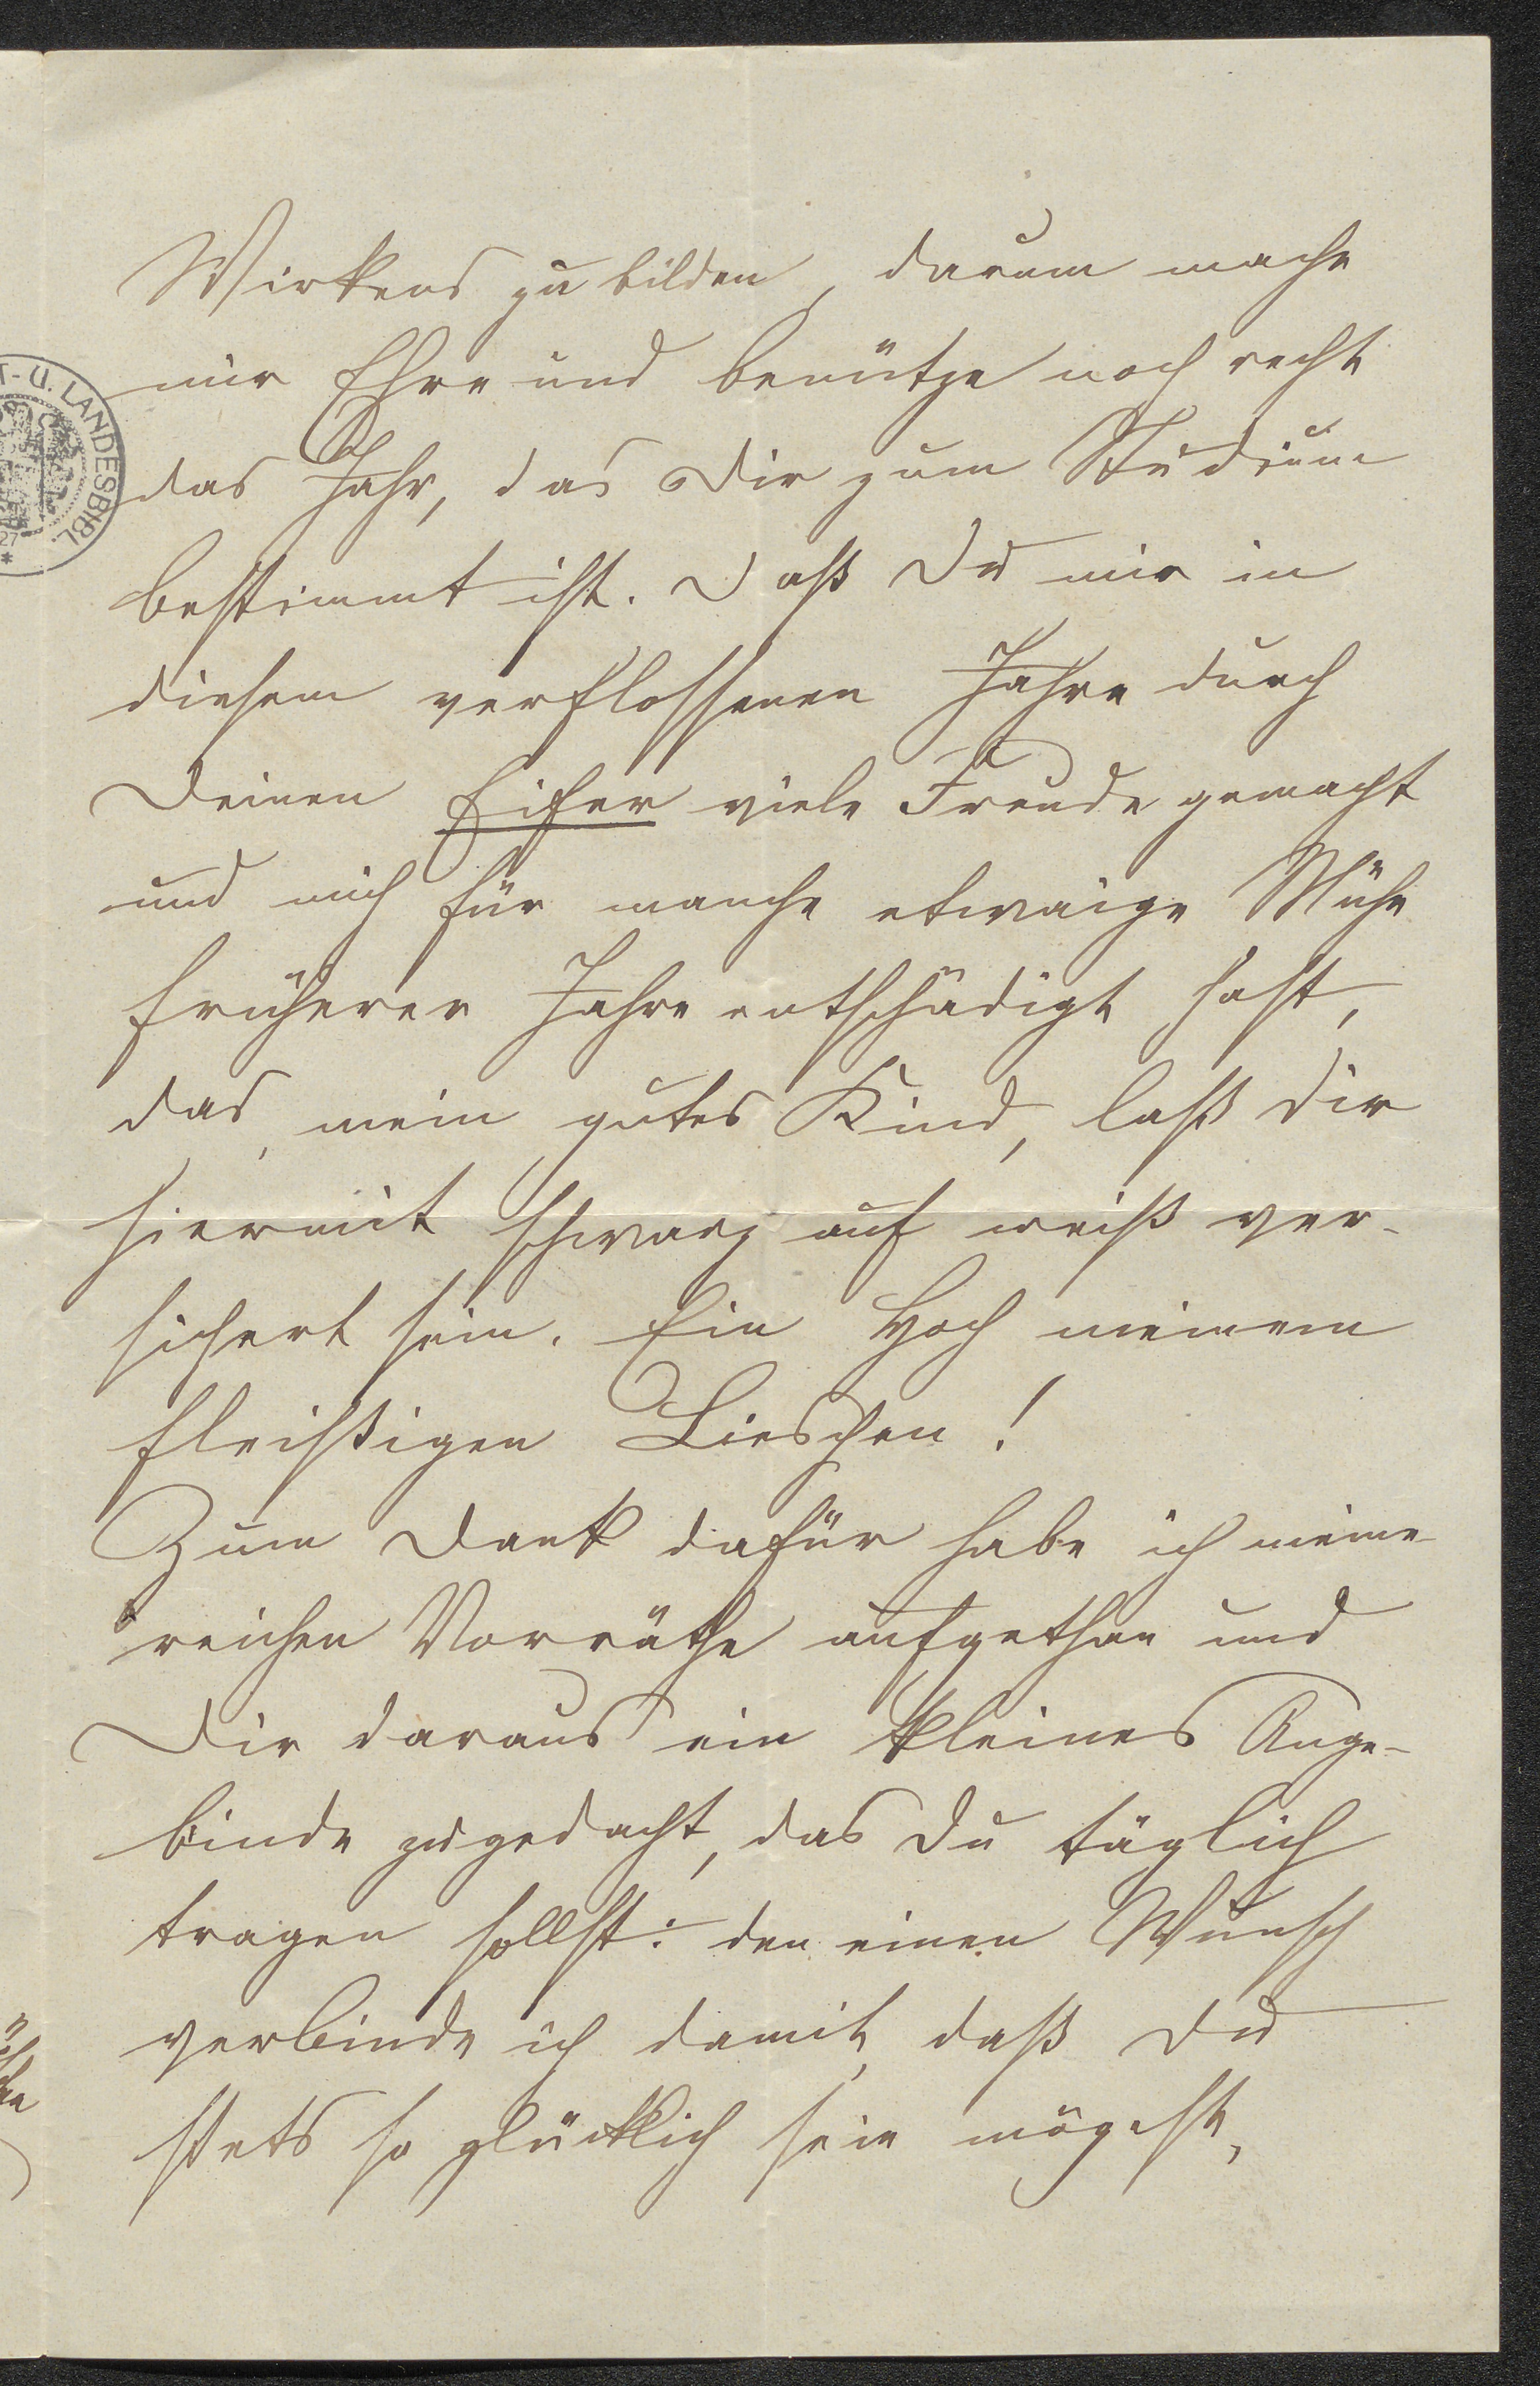 Wirkens zu bilden, darum mache
mir Ehre und benütze noch recht
das Jahr, das Dir zum Studium
bestimmt ist. Daß Du mir in
diesem verflossenen Jahre durch
Deinen Eifer viele Freude gemacht
und mich für manche etwaige Mühe
früherer Jahre entschädigt hast,
das, mein gutes Kind, laß Dir
hiermit schwarz auf weiß ver-
sichert sein. Ein Hoch meinem
fleißigen Lieschen!
Zum Dank dafür habe ich meine
reichen Vorräthe aufgethan und
Dir daraus ein kleines Ange-
binde zugedacht, das Du täglich
tragen sollst: den einen Wunsch
verbinde ich damit, daß Du
stets so glücklich sein mögest,
T.- U. LANDESBIBL.
27
*